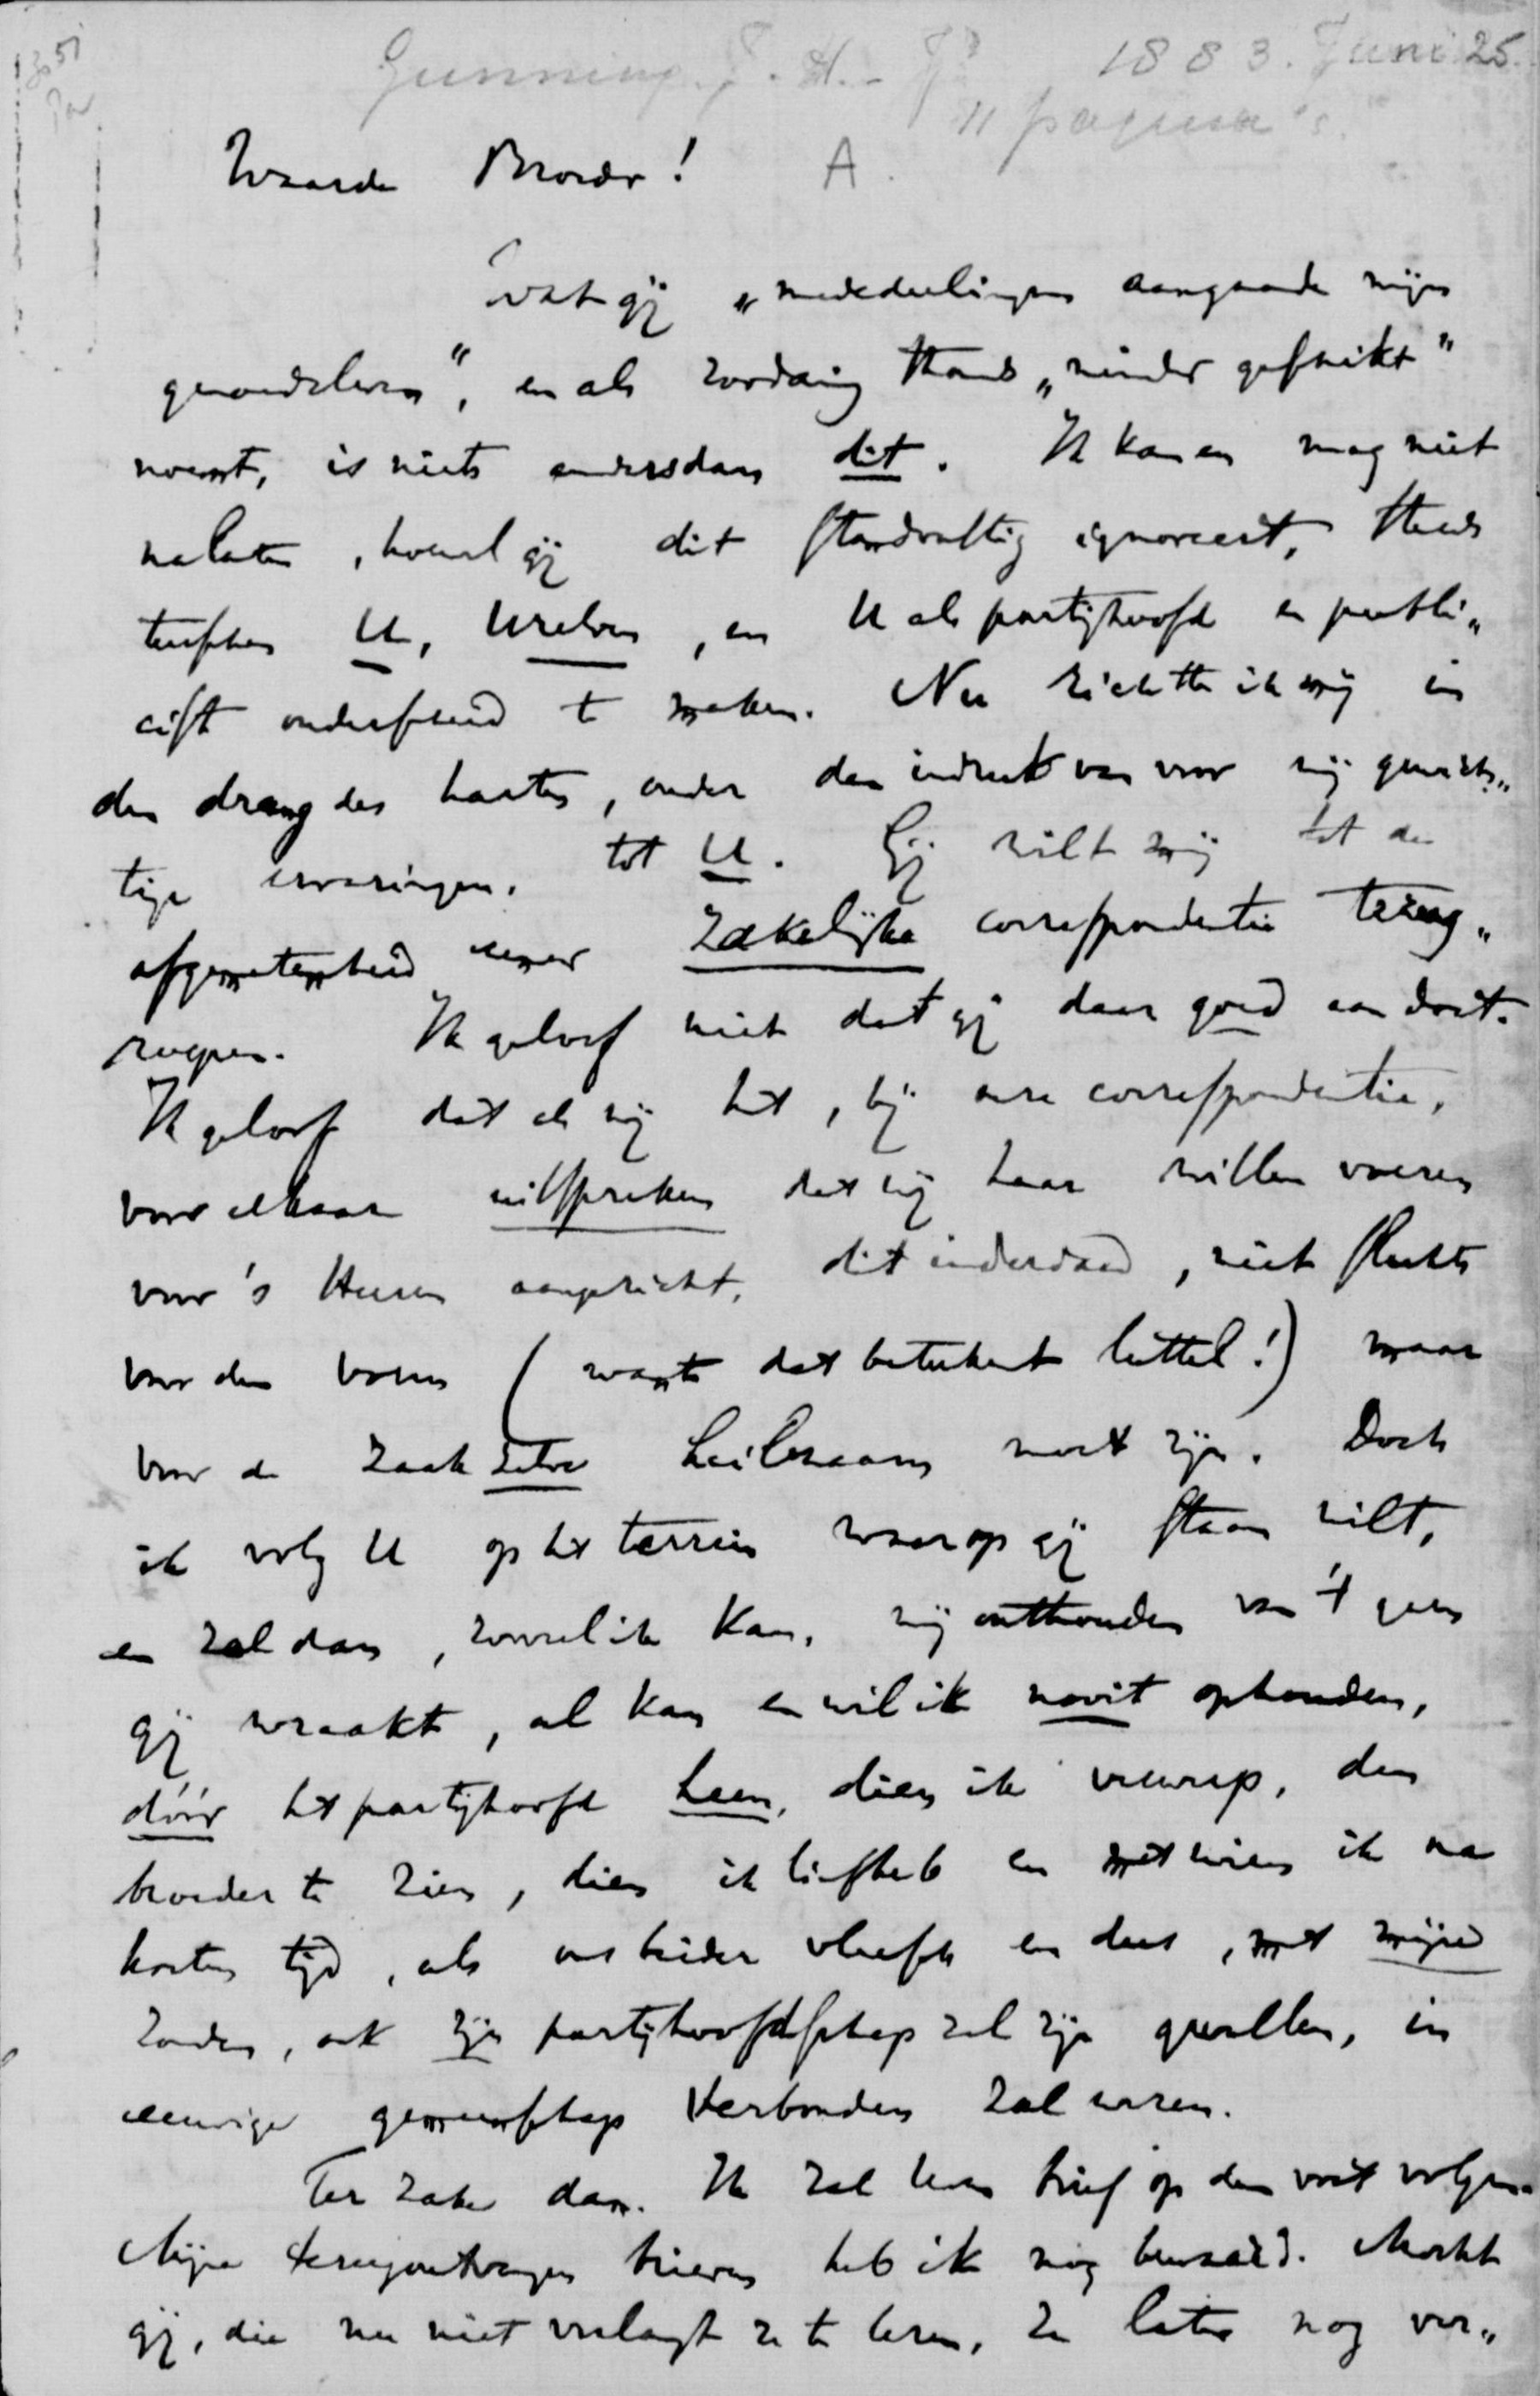 Gunning J. H. Jr 1883. Juni 25.
11 pagina's.
Waarde Broeder! A.
Wat gij „mededeelingen aangaande mijn
gemoedsleven", en als zoodanig thans „minder geschikt"
noemt, is niets anders dan dit. Ik kan en mag niet
nalaten, hoewel gij dit standvastig ignoreert, steeds
tusschen U, Uzelven, en U als partijhoofd en publi„
cist onderscheid te maken. Nu richtte ik mij in
den drang des harten, onder den indruk van voor mij gewich„
tige ervaringen, tot U. Gij wilt mij tot de
afgemetenheid eener zakelijke correspondentie terug„
roepen. Ik geloof niet dat gij daar goed aan doet.
Ik geloof dat als wij het, bij onze correspondentie,
voor elkaar uitspreken dat wij haar willen voeren
voor 's Heeren aangezicht, dit inderdaad, niet slechts
voor den vorm (want dat beteekent luttel!) maar
voor de zaak zelve heilzaam moet zijn. Doch
ik volg U op het terrein waarop gij staan wilt,
en zal dan, zooveel ik kan, mij onthouden van 't geen
gij wraakt, al kan en wil ik nooit ophouden,
dóór het partijhoofd heen, dien ik verwerp, den
broeder te zien, dien ik liefheb en met wien ik na
korten tijd, als ons beider vleesch en dus, met mijne
zonden, ook zijn partijhoofdschap zal zijn gevallen, in
eeuwige gemeenschap verbonden zal wezen.
Ter zake dan. Ik zal Uwen brief op den voet volgen.
Mijne terugontvangen brieven heb ik nog bewaard. Mocht
gij, die nu niet verlangt ze te lezen, ze later nog ver„